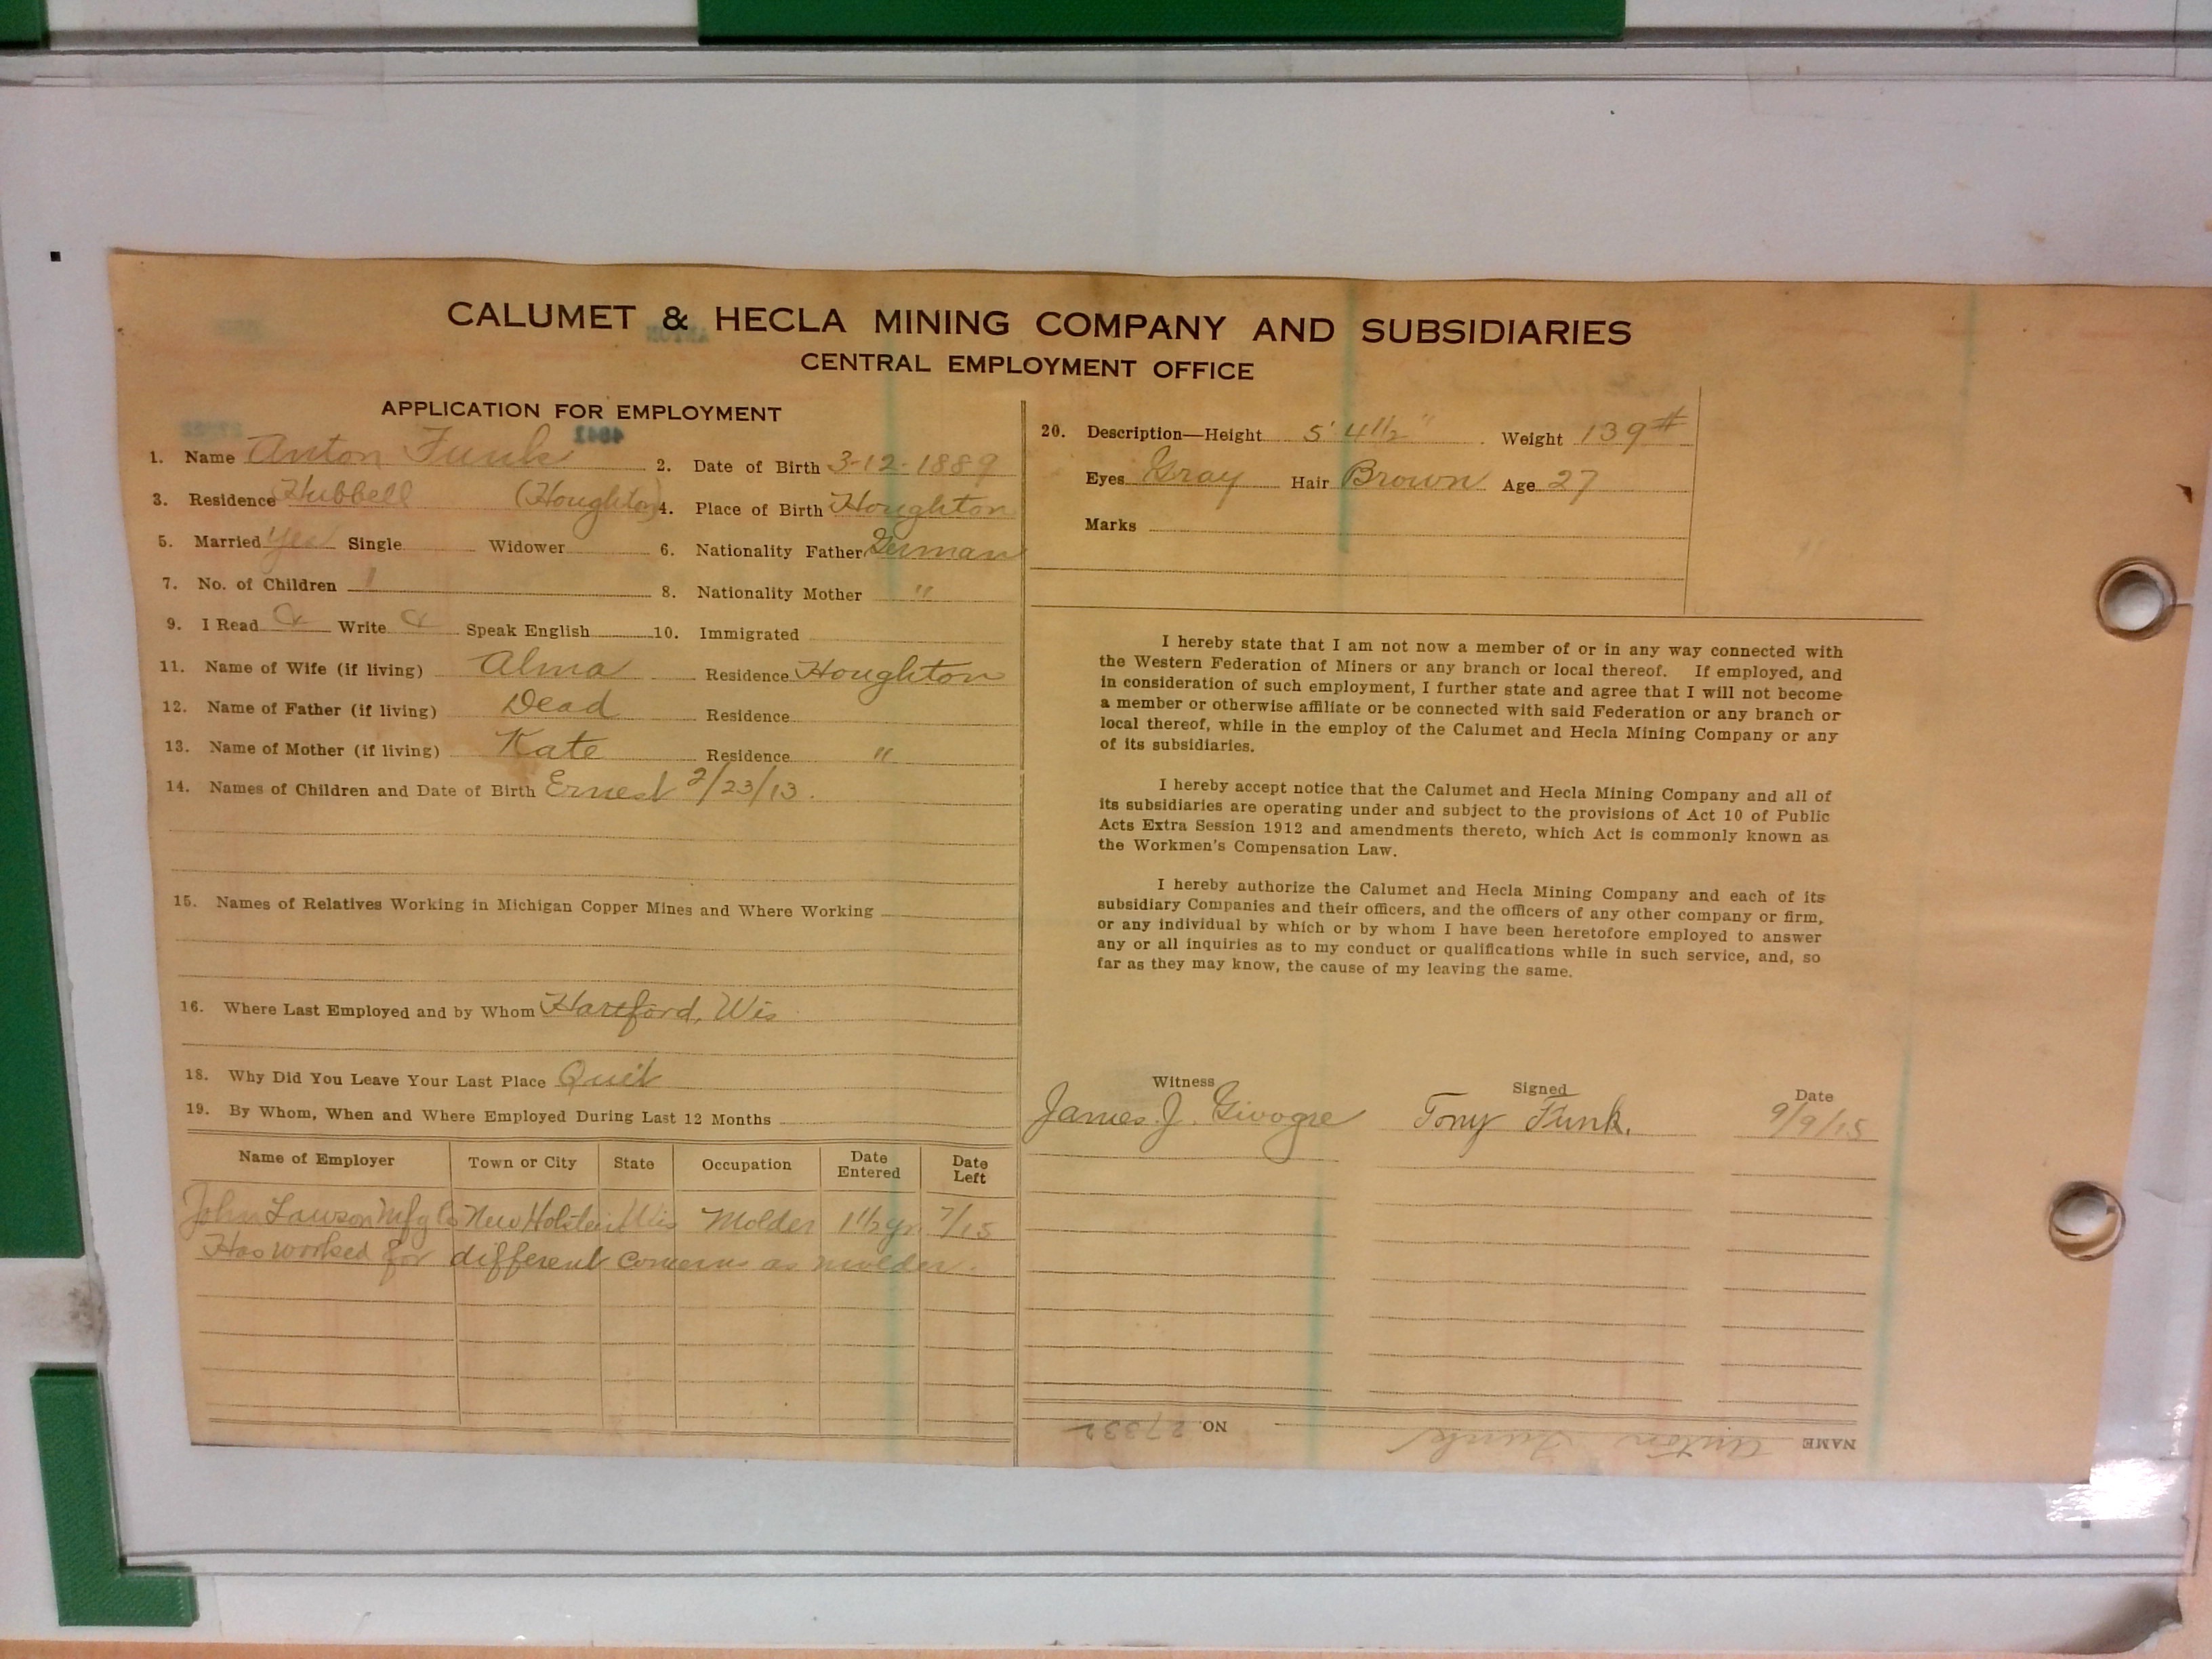 CALUMET & HECLA MINING COMPANY AND SUBSIDIARIES
CENTRAL EMPLOYMENT OFFICE
APPLICATION FOR EMPLOYMENT
1. Name Anton Funk 2. Date of Birth 3-12-1889
3. Residence Hubbell (Houghton) 4. Place of Birth Houghton
5. Married Yes Single Widower 6. Nationality Father German
7. No. of Children 1 8. Nationality Mother "
9. I Read Write Speak English 10. Immigrated
11. Name of Wife (if living) Alma Residence Houghton
12. Name of Father (if living) Dead Residence
13. Name of Mother (if living) Kate Residence "
14. Names of Children and Date of Birth Ernest 2/23/13.
15. Names of Relatives Working in Michigan Copper Mines and Where Working
16. Where Last Employed and by Whom Hartford, Wis
18. Why Did You Leave Your Last Place Quit
19. By Whom, When and Where Employed During Last 12 Months
Name of Employer Town or City State Occupation Date Entered Date Left
John Lawson Mfg Co New Holstein Wis Molder 1 1/2 yr 7/15
Has worked for different concerns as molder.
20. Description—Height 5' 4 1/2" Weight 139#
Eyes Gray Hair Brown Age 27
Marks
I hereby state that I am not now a member of or in any way connected with
the Western Federation of Miners or any branch or local thereof. If employed, and
in consideration of such employment, I further state and agree that I will not become
a member or otherwise affiliate or be connected with said Federation or any branch or
local thereof, while in the employ of the Calumet and Hecla Mining Company or any
of its subsidiaries.
I hereby accept notice that the Calumet and Hecla Mining Company and all of
its subsidiaries are operating under and subject to the provisions of Act 10 of Public
Acts Extra Session 1912 and amendments thereto, which Act is commonly known as
the Workmen's Compensation Law.
I hereby authorize the Calumet and Hecla Mining Company and each of its
subsidiary Companies and their officers, and the officers of any other company or firm,
or any individual by which or by whom I have been heretofore employed to answer
any or all inquiries as to my conduct or qualifications while in such service, and, so
far as they may know, the cause of my leaving the same.
Witness Signed Date
James J. Givogre Tony Funk. 9/9/15
NAME Anton Funk NO. 27332